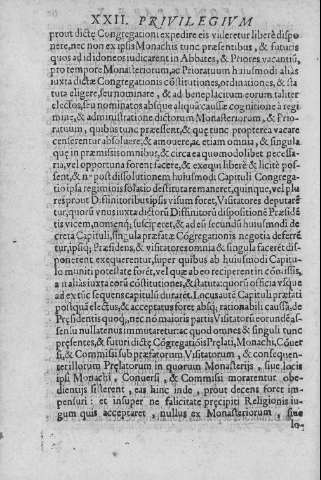 XXII. PRIVILEGIVM
prout dictę Congregationi expedire eis videretur liberè dispo
nere, nec non ex ipsis Monachis tunc pręsentibus, & futuris
quos ad id idoneos iudicarent in Abbates, & Priores vacantiū,
pro tempore Monasteriorum, ac Prioratuum huiusmodi aliàs
iuxta dictæ Congregationis cōstitutiones, ordinationes, & sta
tuta eligere, seu nominare, & ad beneplacitum eorum taliter
electos, seu nominatos absque aliqua causæ cognitione à regi
mine, & administratione dictorum Monasteriorum, & Prio
ratuum, quibus tunc præessent, & que tunc propterea vacare
censerentur absoluere, & amouere, ac etiam omnia, & singula
quę in præmissis omnibus, & circa ea quomodolibet necessa-
ria, vel opportuna forent facere, & exequi liberè & licitè pos-
sent, & nè post dissolutionem huiusmodi Capituli Congrega-
tio ipsa regiminis solatio destituta remaneret, quinque, vel plu
res prout Diffinitoribus ipsis visum foret, Visitatores deputarē
tur, quorū vnus iuxta dictorū Diffinitorū dispositionē Præsidē
tis vicem, nomenq; susciperet, & ad eū secundū huiusmodi de
creta Capituli, singula præfatæ Cōgregationis negotia deferrē
tur, ipsiq; Præsidens, & visitatores omnia & singula facere et dispo-
ponerent exequerentur, super quibus ab huiusmodi Capitu-
lo muniti potestate forēt, vel quæ ab eo reciperent in cōmissis,
aliàs iuxta eorū cōstitutiones, & statuta: quorū officia vsque
ad exitū sequens capituli durarēt. Locus autē Capituli præfati
postquā electus, & acceptatus foret absq; rationabili causa, de
Pręsidentis quoq; nec nō maioris partis Visitatorū eorundē as-
sensu nullatenus immutaretur: ac quod omnes & singuli tunc
pręsentes, & futuri dictę Cōgregatiōis Prelati, Monachi, Cōuer
si, & Commissi sub præfatorum Visitatorum, & consequen-
ter illorum Prelatorum in quorum Monasterijs, siue locis
ipsi Monachi, Conuersi, & Commisi morarentur obe-
dientijs sisterent, eas hinc inde, prout decens foret im-
pensuri: et insuper ne falicitate pręcipiti Religionis iu-
gum quis acceptaret, nullus ex Monasteriorum, siue
lo-